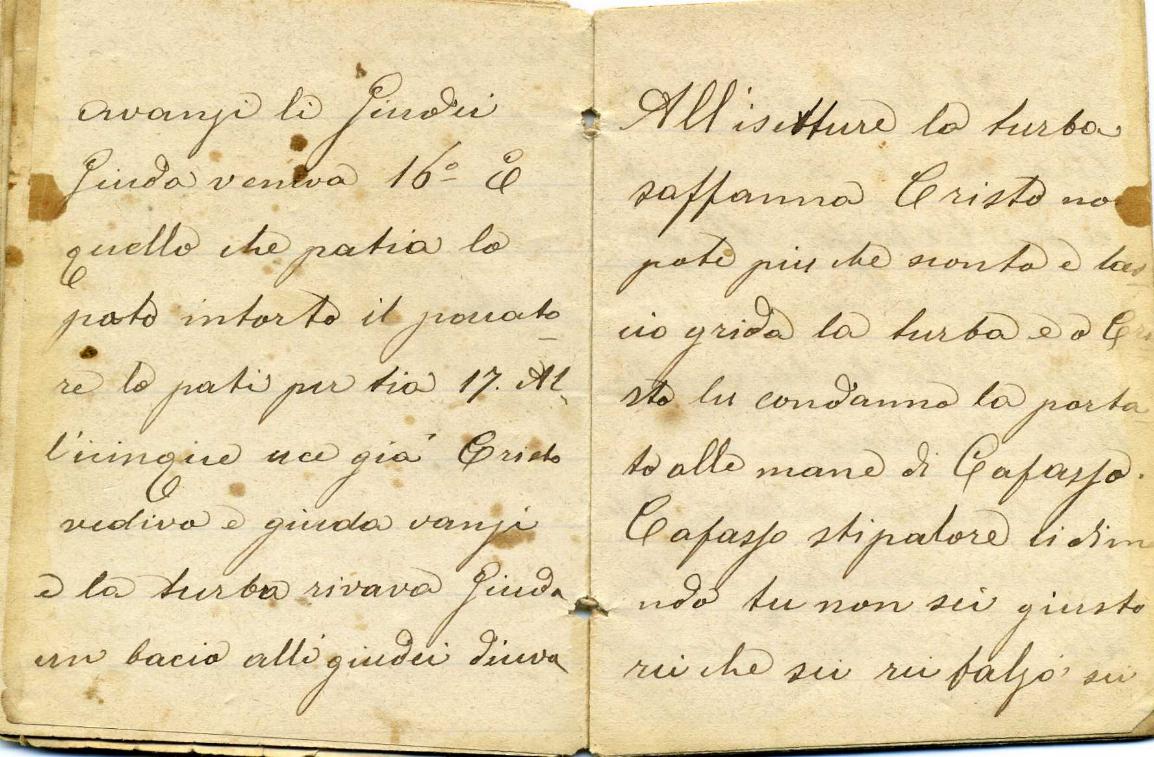 avanzi li Giudei
Giuda veniva 16º E
quello che patia lo
pato intorto il peccato
re lo pati per tia 17. Al
l'cinque uce già Cristo
vediva e giuda vanzi
e la turba rivava Giuda
un bacio alli giudei diceva
All'isetture la turba
saffanna Cristo no
pote piu che sconta e las
cio grida la turba e o Cri
sto lu condanno la porta
to alle mane di Cafasso.
Cafasso stipatore li dim
ndo tu non sei giusto
rei che sei rei falzo sei